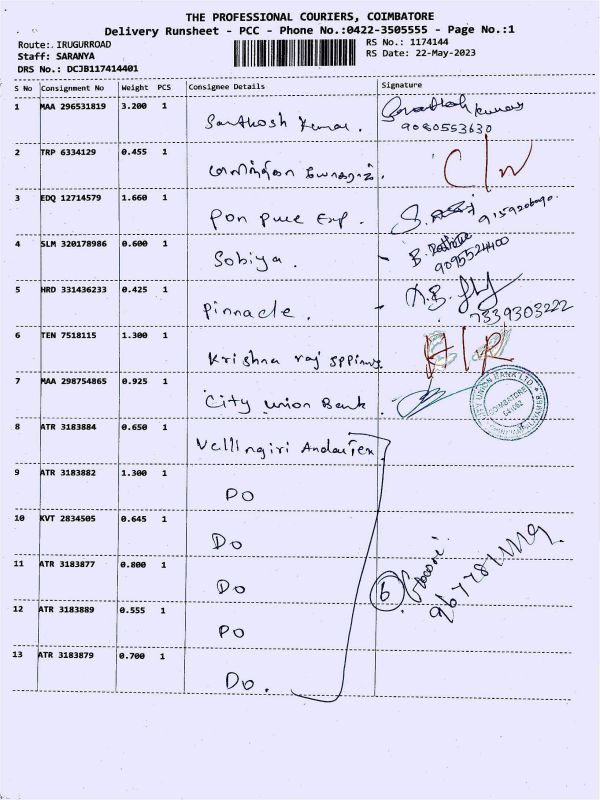 THE PROFESSIONAL COURIERS, COIMBATORE
Delivery Runsheet - PCC - Phone No.:0422-3505555 - Page No.:1
Route: IRUGURROAD
RS No.: 1174144
Staff: SARANYA
RS Date: 22-May-2023
DRS No.: DCJB117414401
S No Consignment No Weight PCS Consignee Details Signature
1 MAA 296531819 3.200 1 Santhosh Kumar. Santhosh Kumar
9080553630
2 TRP 6334129 0.455 1 C/W
3 EDQ 12714579 1.660 1 Pon Pure Exp.
4 SLM 320178986 0.600 1 Sobiya. B.
9095524400
5 HRD 331436233 0.425 1 Pinnacle.
7339303222
6 TEN 7518115 1.300 1 Krishna raj
7 MAA 298754865 0.925 1 City Union Bank. CITY UNION BANK LTD.
COIMBATORE
8 ATR 3183884 0.650 1 Vellingiri Andavr Tex
9 ATR 3183882 1.300 1 DO
10 KVT 2834505 0.645 1 Do
11 ATR 3183877 0.800 1 Do 6 Gowri
12 ATR 3183889 0.555 1 DO
13 ATR 3183879 0.700 1 Do.